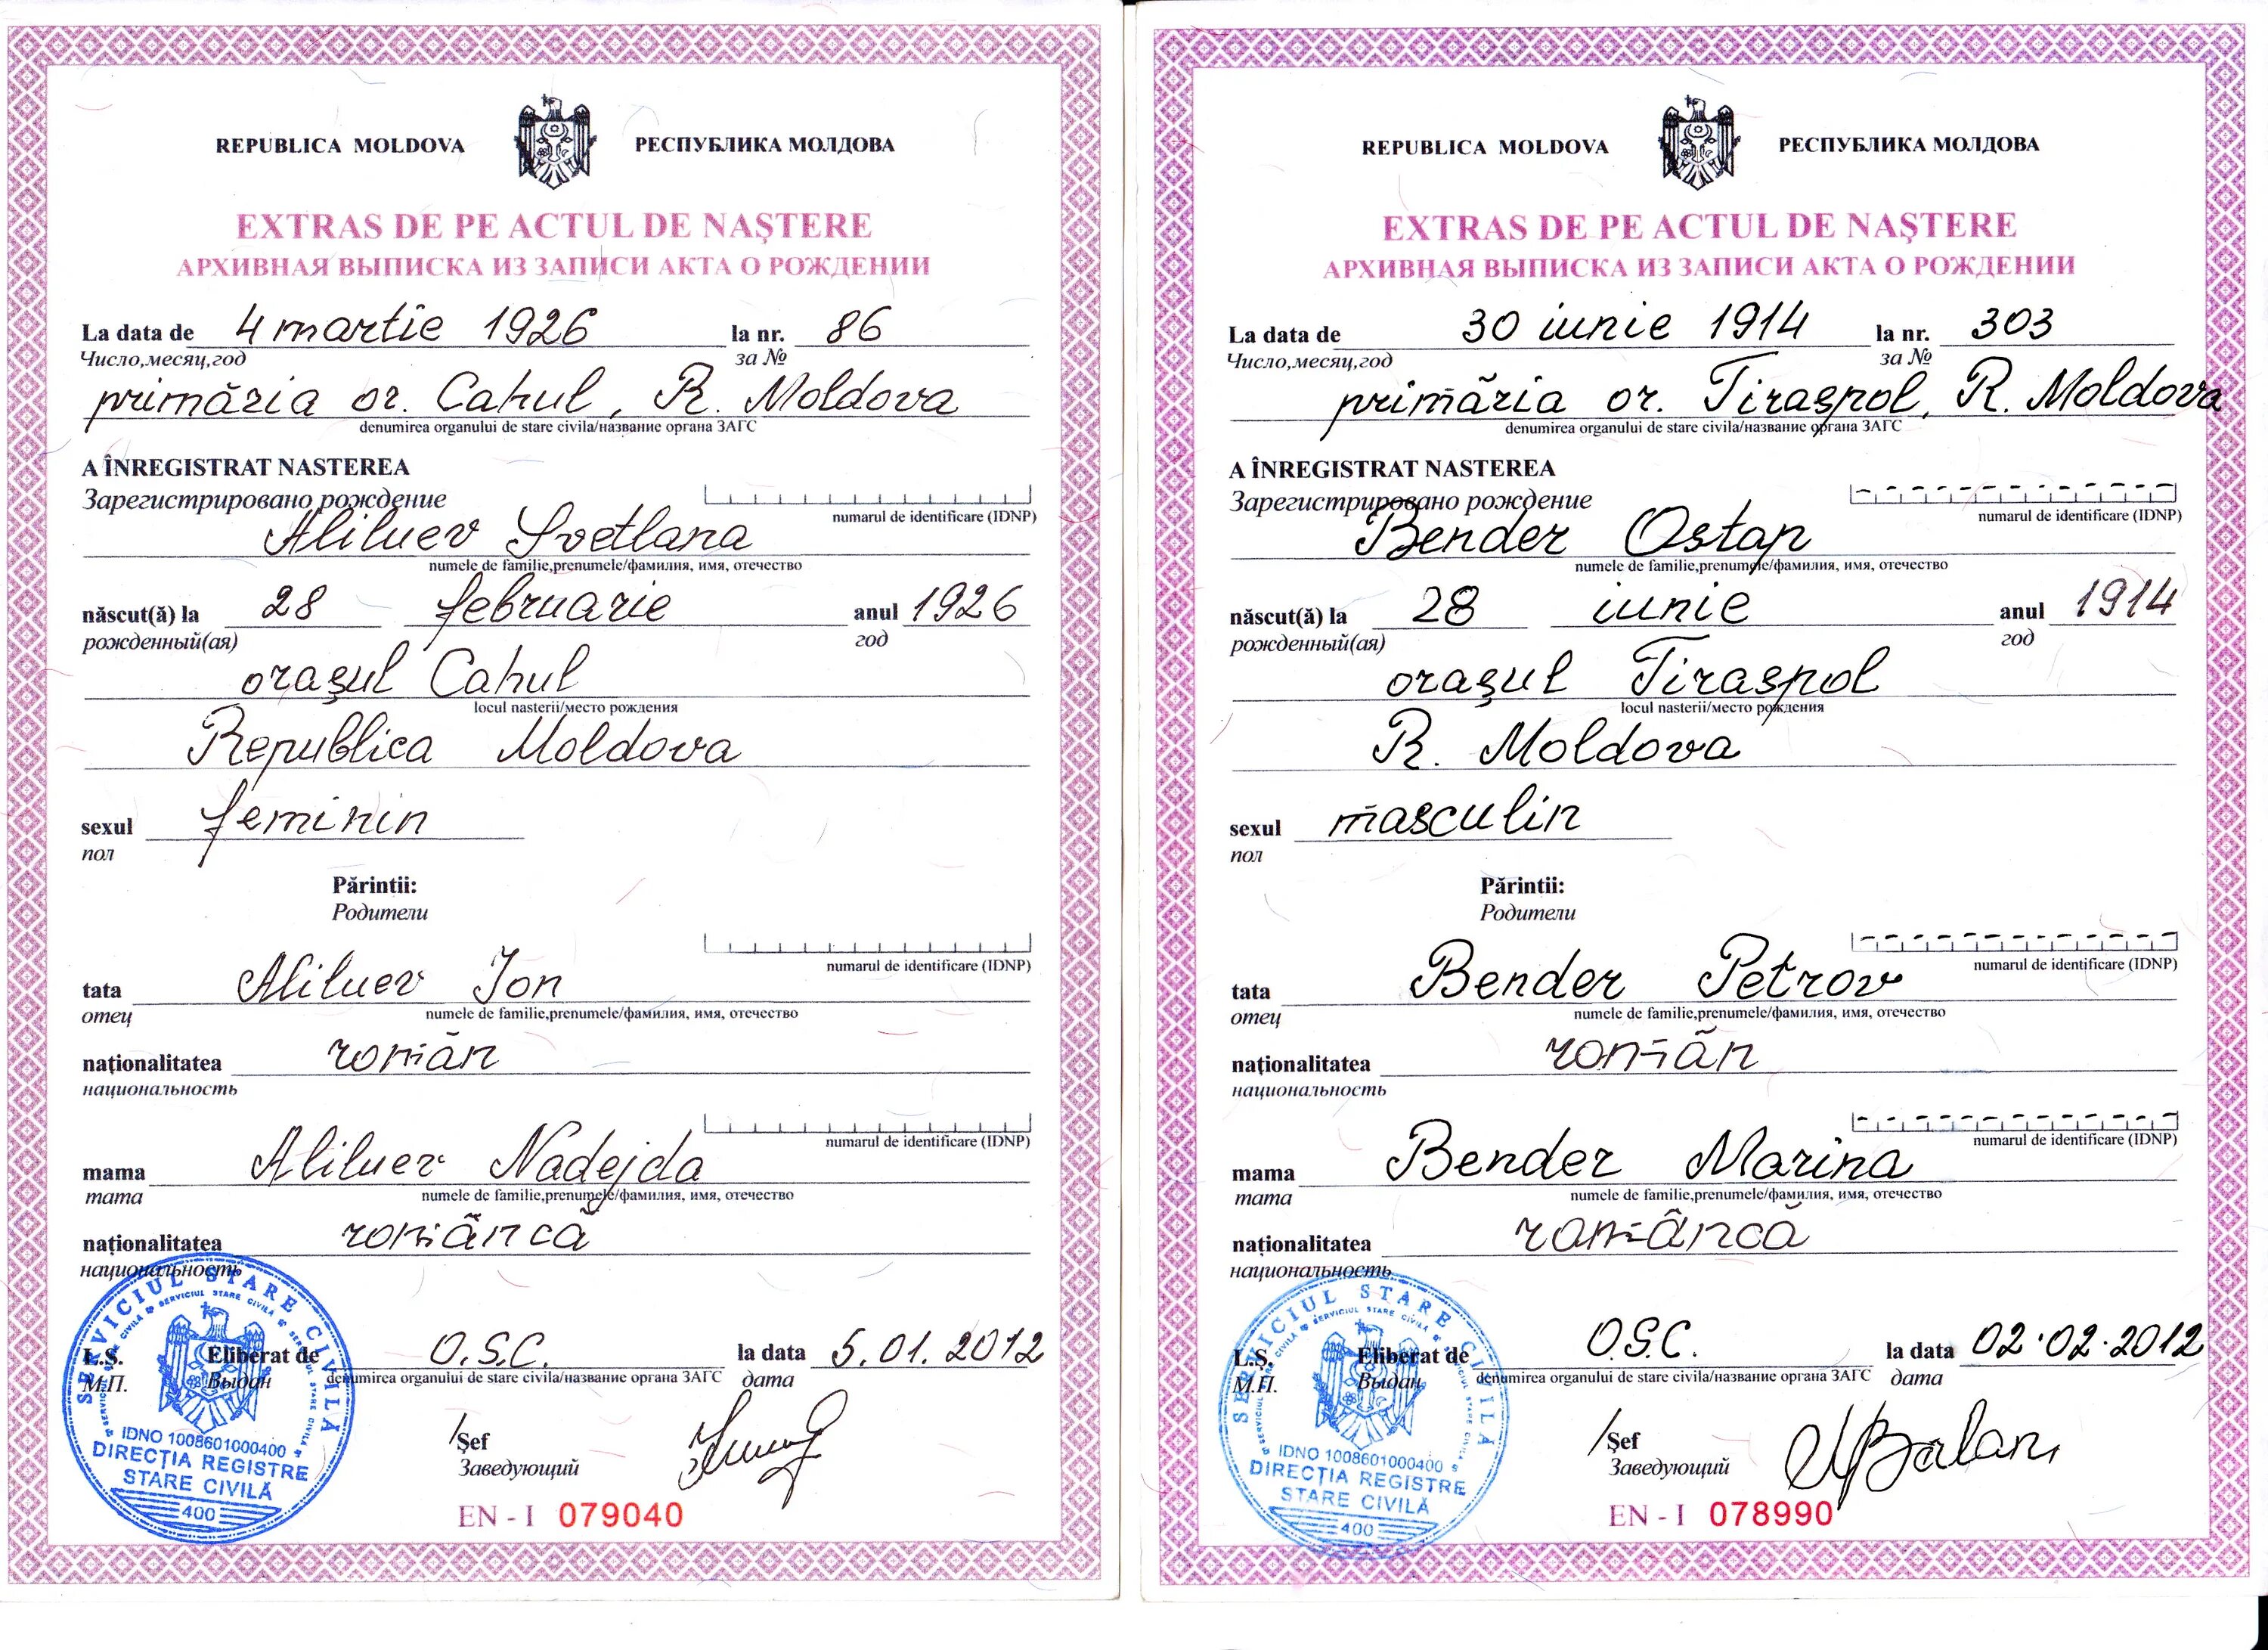 REPUBLICA MOLDOVA РЕСПУБЛИКА МОЛДОВА
EXTRAS DE PE ACTUL DE NAŞTERE
АРХИВНАЯ ВЫПИСКА ИЗ ЗАПИСИ АКТА О РОЖДЕНИИ
La data de 4 martie 1926 la nr. 86
Число,месяц,год за №
primăria or. Cahul, R. Moldova
denumirea organului de stare civila/название органа ЗАГС
A ÎNREGISTRAT NASTEREA
Зарегистрировано рождение
numarul de identificare (IDNP)
Aliluev Svetlana
numele de familie,prenumele/фамилия, имя, отечество
născut(ă) la 28 februarie anul 1926
рожденный(ая) год
oraşul Cahul
locul nasterii/место рождения
Republica Moldova
sexul feminin
пол
Părintii:
Родители
numarul de identificare (IDNP)
tata Aliluev Ion
отец numele de familie,prenumele/фамилия, имя, отечество
naţionalitatea român
национальность
numarul de identificare (IDNP)
mama Aliluev Nadejda
mama numele de familie,prenumele/фамилия, имя, отечество
naţionalitatea româncă
национальность
L.Ş. Eliberat de O.S.C. la data 5.01.2012
М.П. Выдан denumirea organului de stare civila/название органа ЗАГС дата
/Şef
Заведующий
EN - I 079040
SERVICIUL STARE CIVILĂ
IDNO 1008601000400
DIRECŢIA REGISTRE
STARE CIVILĂ
400
REPUBLICA MOLDOVA РЕСПУБЛИКА МОЛДОВА
EXTRAS DE PE ACTUL DE NAŞTERE
АРХИВНАЯ ВЫПИСКА ИЗ ЗАПИСИ АКТА О РОЖДЕНИИ
La data de 30 iunie 1914 la nr. 303
Число,месяц,год за №
primăria or. Tiraspol, R. Moldova
denumirea organului de stare civila/название органа ЗАГС
A ÎNREGISTRAT NASTEREA
Зарегистрировано рождение
numarul de identificare (IDNP)
Bender Ostap
numele de familie,prenumele/фамилия, имя, отечество
născut(ă) la 28 iunie anul 1914
рожденный(ая) год
oraşul Tiraspol
locul nasterii/место рождения
R. Moldova
sexul masculin
пол
Părintii:
Родители
numarul de identificare (IDNP)
tata Bender Petrov
отец numele de familie,prenumele/фамилия, имя, отечество
naţionalitatea român
национальность
numarul de identificare (IDNP)
mama Bender Marina
mama numele de familie,prenumele/фамилия, имя, отечество
naţionalitatea româncă
национальность
L.Ş. Eliberat de O.S.C. la data 02.02.2012
М.П. Выдан denumirea organului de stare civila/название органа ЗАГС дата
/Şef
Заведующий
EN - I 078990
SERVICIUL STARE CIVILĂ
IDNO 1008601000400
DIRECŢIA REGISTRE
STARE CIVILĂ
400